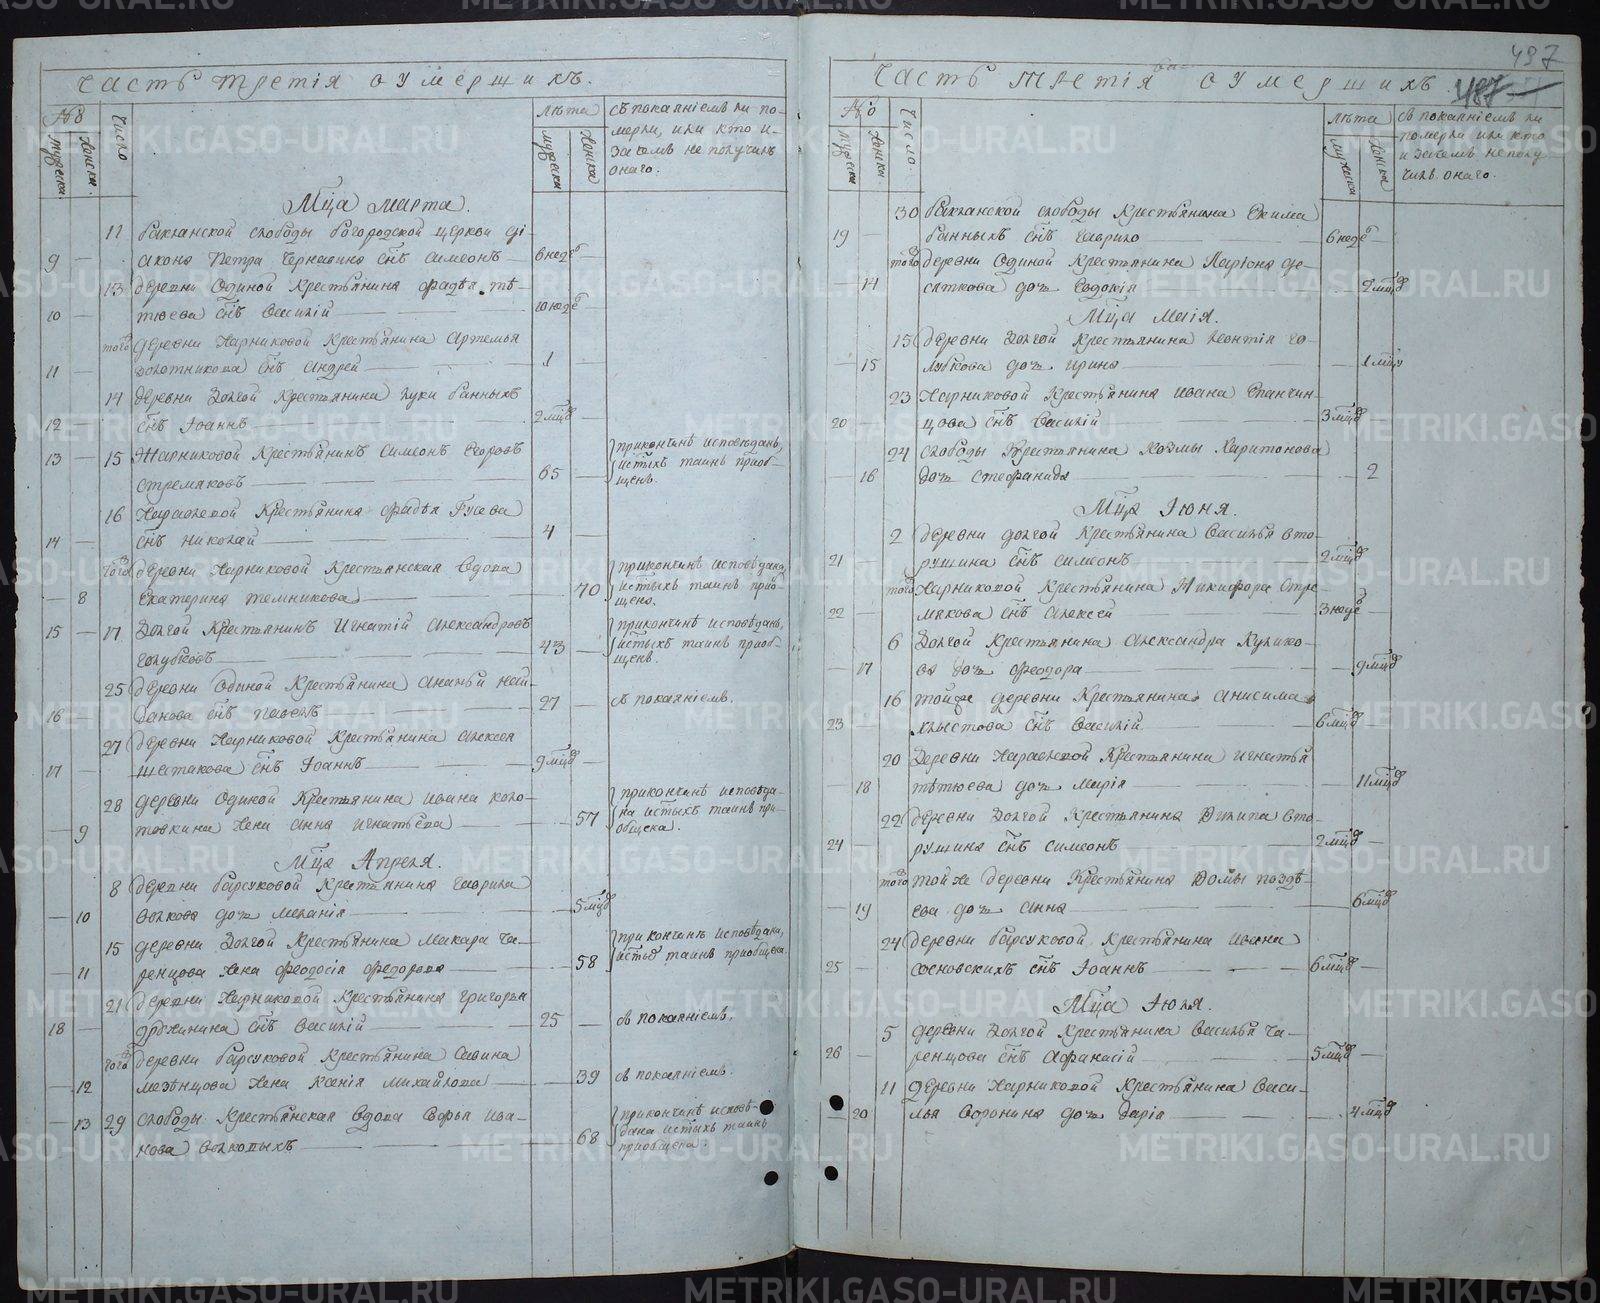 Часть третія о умершихъ.
№
мужеска
женска
число
лѣта
мужеска
женска
съ покаяніемъ ли по-
мерли, или кто и
за чемъ не получилъ
онаго.
Мца Марта.
11 слободы Богородской церкви ді-
9 акона Петра снъ Симеонъ 6 неде
13 деревни Одиной Крестьянина Фадѣя тѣ-
10 тюева снъ Василій
того деревни Жарниковой Крестьянина Артемья
11 золотникова снъ Андрей 1
14 деревни Долгой Крестьянина Луки банныхъ
12 снъ Іоаннъ 2 мцъ
13 15 Жарниковой Крестьянинъ Симеонъ Егоровъ
Стремяковъ 65
прикончинѣ исповѣданъ,
истыхъ таинъ приоб-
щенъ.
16 Крестьянина Фадѣя Гусева
14 снъ Николай 4
того деревни Жарниковой Крестьянская вдова
8 Екатерина Темникова 70
прикончинѣ исповѣдана,
истыхъ таинъ прио
щена.
15 17 Долгой Крестьянинъ Игнатій Александровъ
голубковъ 43
прикончинѣ исповѣданъ,
истыхъ таинъ приоб-
щенъ.
25 деревни Одиной Крестьянина Ананьи най-
16 данова снъ Павелъ 27 съ покаяніемъ.
27 деревни Жарниковой Крестьянина Алексея
17 шестакова снъ Іоаннъ 9 мцъ
28 деревни Одиной Крестьянина Ивана коло-
9 товкина жена Анна Игнатьева 57
прикончинѣ исповѣда-
на истыхъ таинъ при-
общена.
Мца Апреля.
8 деревни барсуковой Крестьянина Гаврила
10 волкова дочь Меланія 5 мцъ
15 деревни Долгой Крестьянина Макара Ча-
11 ренцова жена Феодосія Федорова 58
при кончинѣ исповѣдана,
истых таинъ приобщена.
21 деревни Жарниковой Крестьянина Григорья
18 снъ Василій 25 съ покаяніемъ.
того деревни барсуковой Крестьянина Савина
12 мезенцова жена Ксенія Михайлова 39 съ покаяніемъ.
13 29 слободы Крестьянская вдова Софья Ива-
нова Волковыхъ 68
прикончинѣ исповѣ-
дана истыхъ таинъ
приобщена.
497
487
Часть третія о умершихъ
№
мужеска
женска.
Число.
лѣта
мужеска
женска
съ покаяніемъ ли
померли или кто
и зачемъ не полу-
чилъ онаго.
30 слободы Крестьянина Екима
19 банныхъ снъ Гаврило 6 неде
того деревни Одиной Крестьянина Ларіона де-
14 сяткова дочь Евдокія 2 мцъ
Мца Маія.
15 деревни Долгой Крестьянина Леонтія го-
15 лубкова дочь Ирина 1 мцъ
23 Жарниковой Крестьянина Ивана Епанчин-
20 цова снъ Василій 3 мцъ
24 слободы Крестьянина Козмы Харитонова
16 дочь Стефанида 2
Мца Іюня.
2 деревни долгой Крестьянина Василья вто-
21 рушина снъ Симеонъ 2 мцъ
того Жарниковой Крестьянина Никифора Стре-
22 мякова снъ Алексей 3 неде
6 Долгой Крестьянина Александра Кулико-
17 ва дочь Феодора 9 мцъ
16 тойже деревни Крестьянина Анисима
23 хлыстова снъ Василій 6 мцъ
20 Деревни Крестьянина Игнатья
18 тѣтюева дочь Марія 11 мцъ
22 деревни Долгой Крестьянина Филипа вто-
24 рушина снъ Симеонъ 2 мцъ
того той же деревни Крестьянина Фомы поздѣ-
19 ева дочь Анна 6 мцъ
24 деревни барсуковой Крестьянина Ивана
25 сосновскихъ снъ Іоаннъ 6 мцъ
Мца Іюля.
5 деревни Долгой Крестьянина Василья Ча-
26 ренцова снъ Афанасій 5 мцъ
11 деревни Жарниковой Крестьянина Васи-
20 лья Воронина дочь Дарія 4 мцъ
METRIKI.GASO-URAL.RU